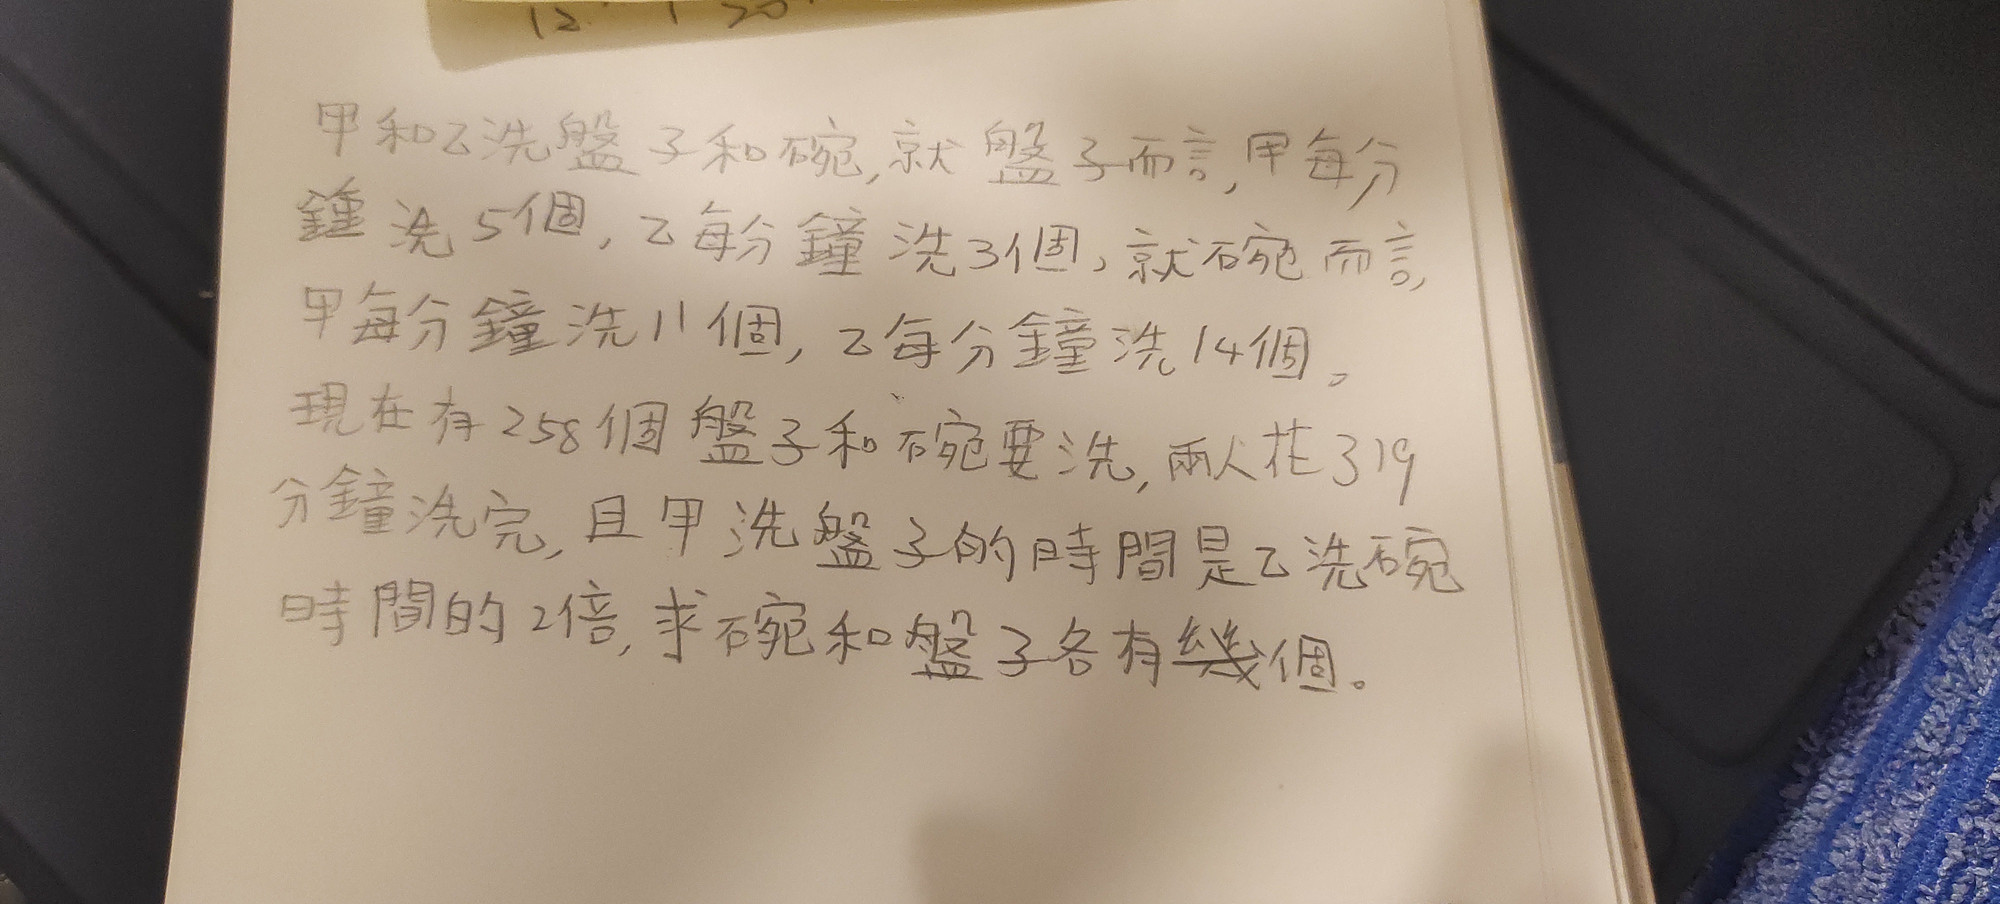 甲和乙洗盤子和碗,就盤子而言,甲每分
鐘洗5個,乙每分鐘洗3個,就碗而言,
甲每分鐘洗11個,乙每分鐘洗14個。
現在有258個盤子和碗要洗,兩人花319
分鐘洗完,且甲洗盤子的時間是乙洗碗
時間的2倍,求碗和盤子各有幾個。